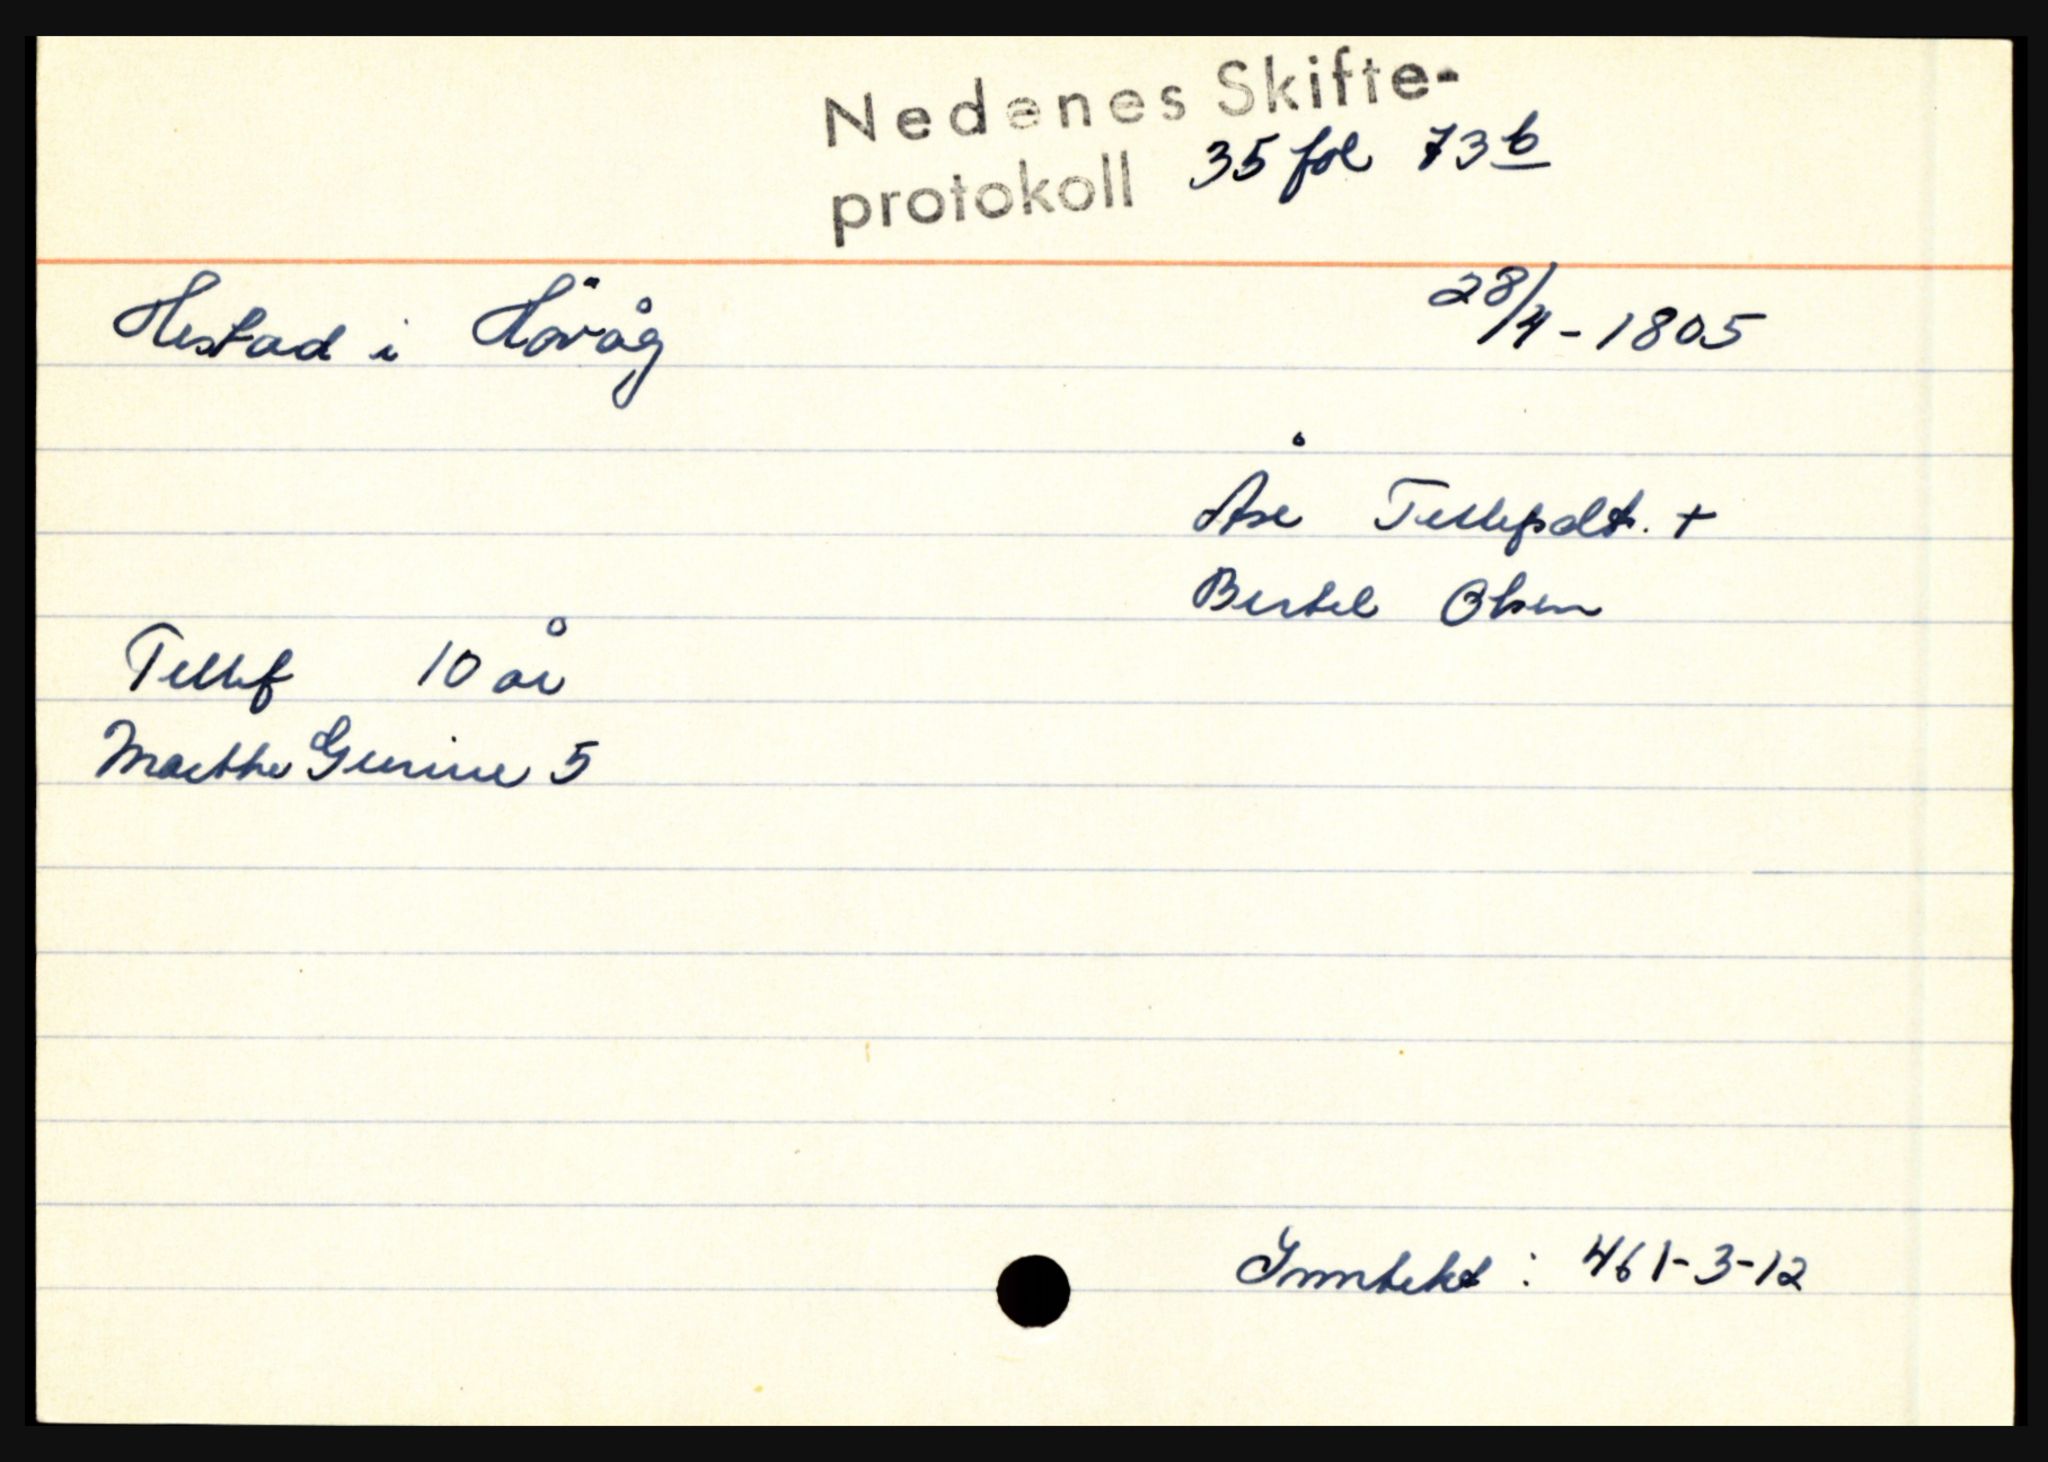 Nedenes Skifte-
protokoll 35 fol 73b
Hestad i Hövåg 28/4-1805
Åse Tellefsdt. +
Bertel Olsen
Tellef 10 år
Marthe Gurine 5
Inntekt : 461-3-12